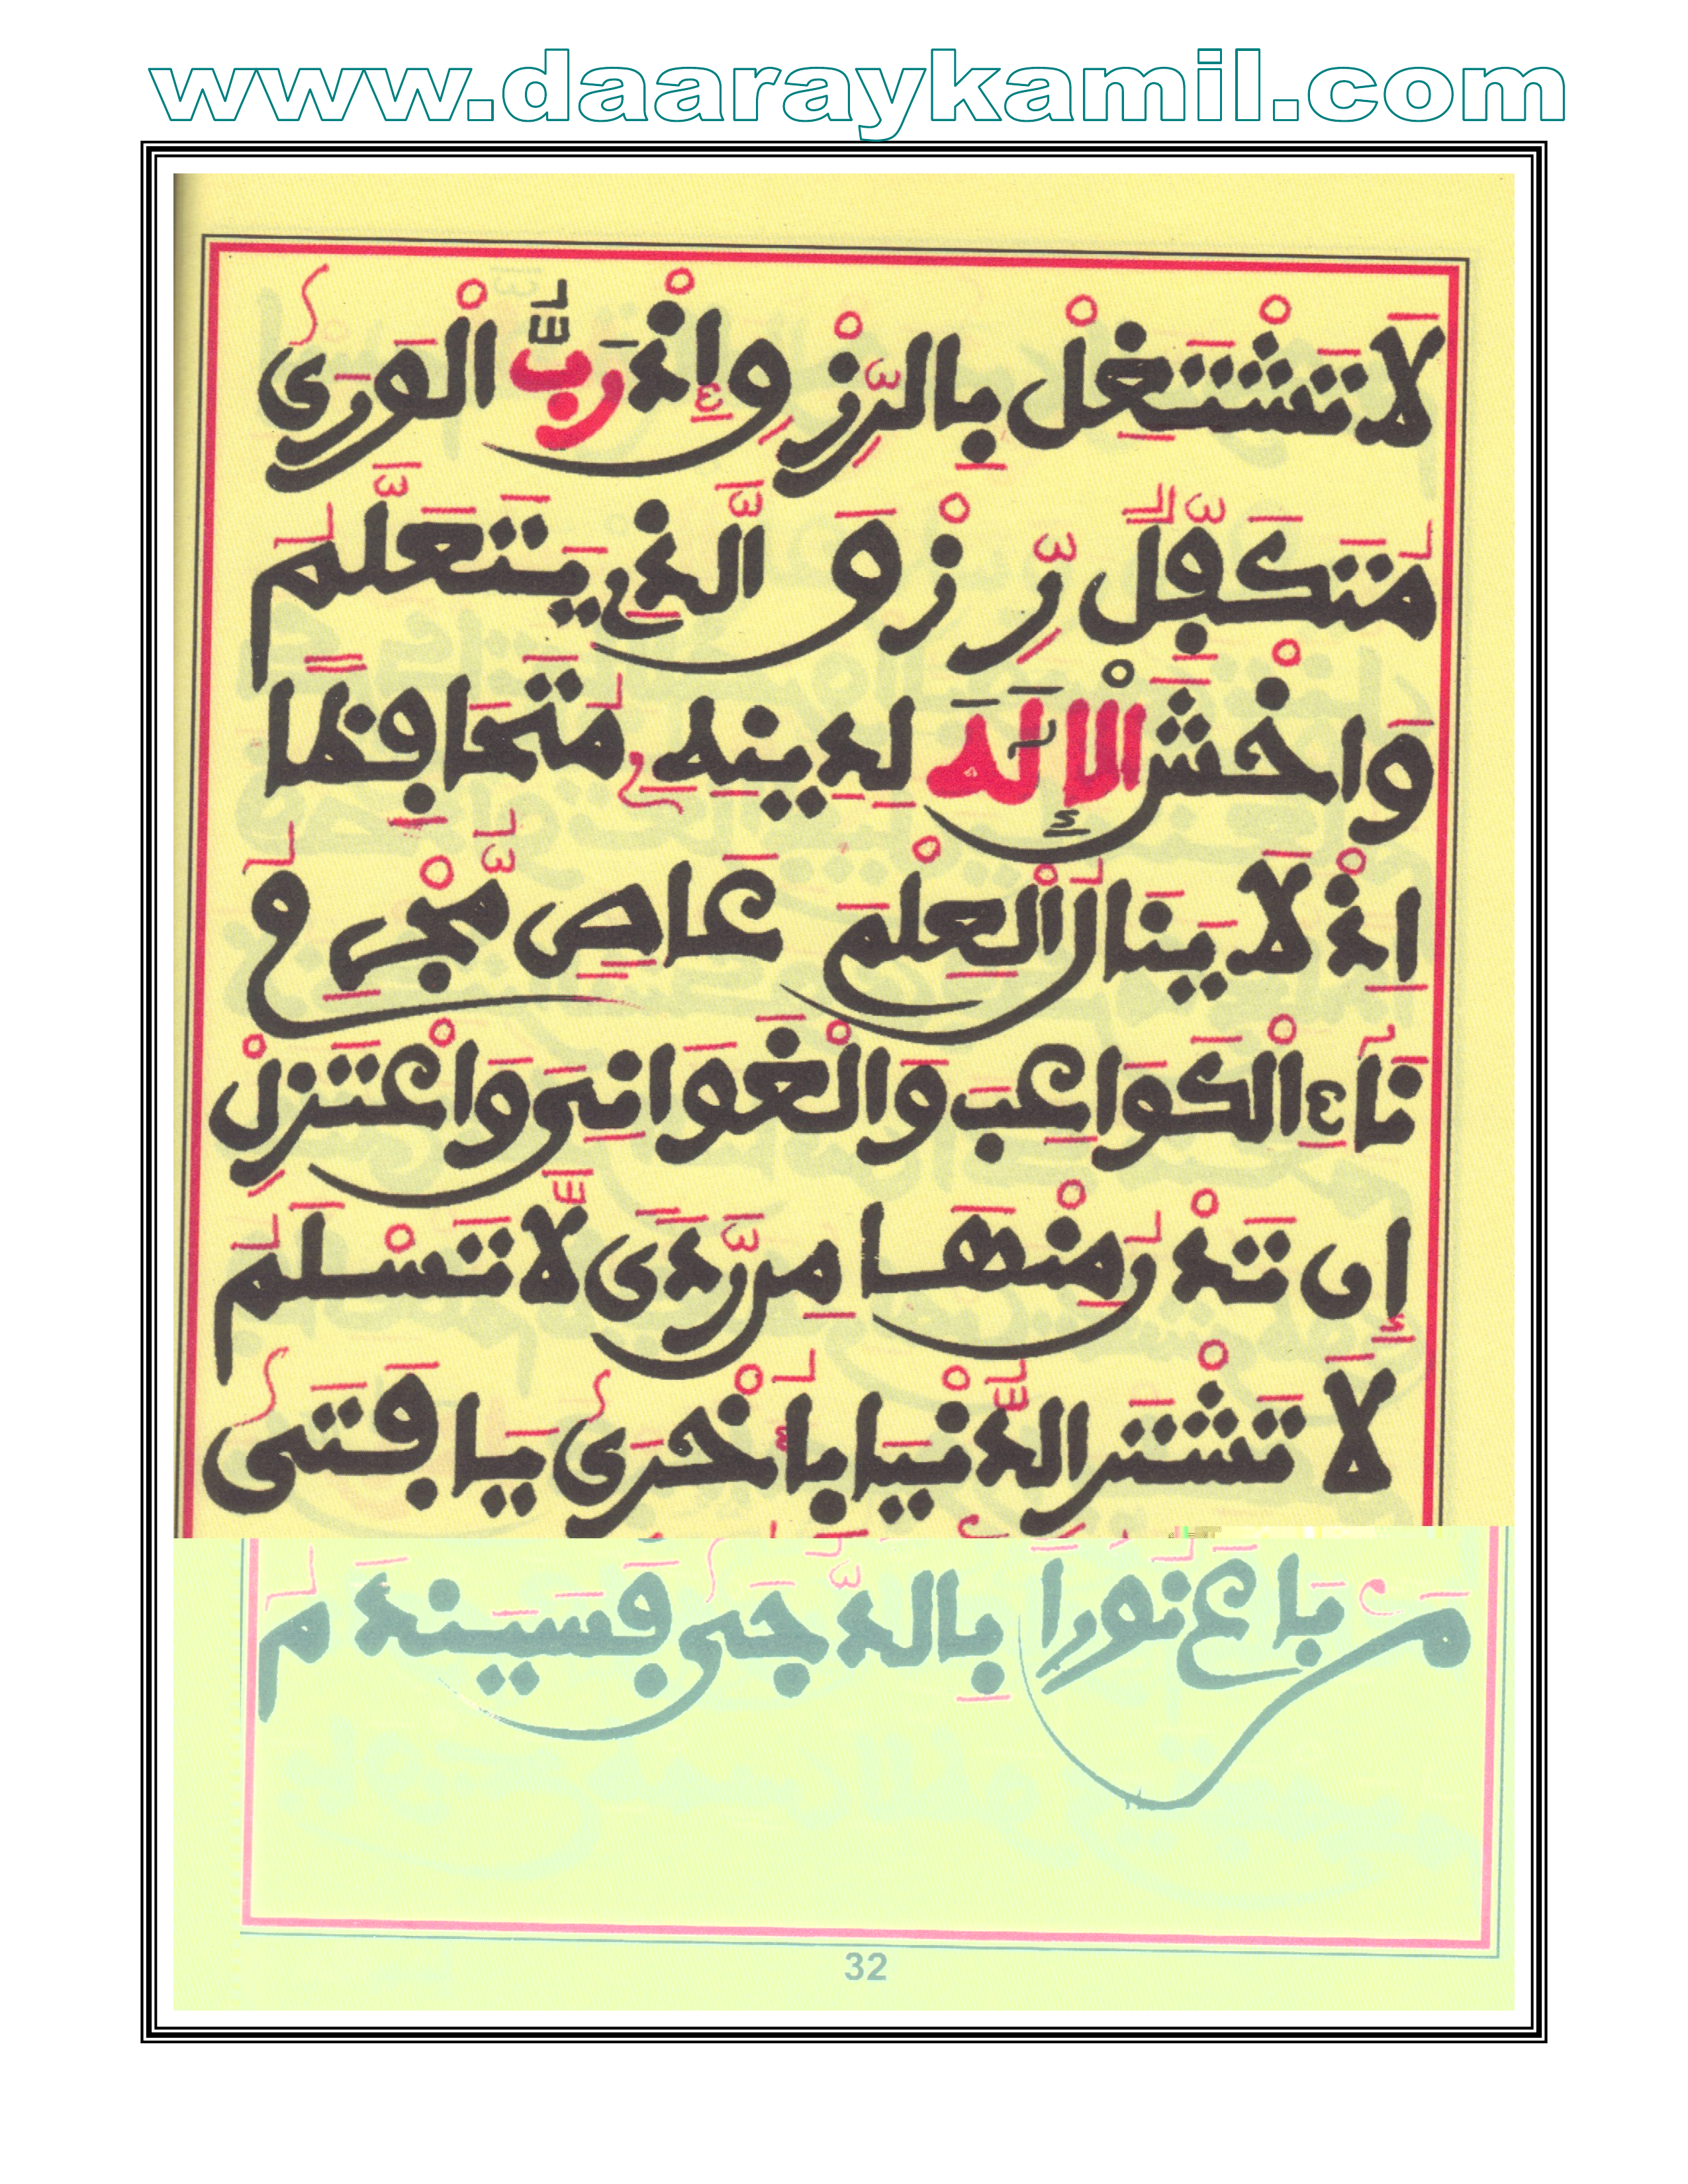 www.daaraykamil.com
لَا تَشْتَغِلْ بِالرِّزْقِ إِذْ رَبُّ الْوَرَى
مُتَكَفِّلٌ رِّزْقَ الَّذِي يَتَعَلَّمُ
وَاخْشَ الْإِلَهَ لِدِينِهِ مُتَحَافِظًا
إِذْ لَا يَنَالُ الْعِلْمَ عَاصٍ مُّجْرِمُ
نَاءِ الْكَوَاعِبَ وَالْغَوَانِيَ وَاعْتَزِلْ
إِن تَدْنُ مِنْهَا مِن رَّدًى لَّا تَسْلَمُ
لَا تَشْتَرِ الدُّنْيَا بِأُخْرَى يَا فَتَى
مَن بَاعَ نُورًا بِالدُّجَى فَسَيَنْدَمُ
32